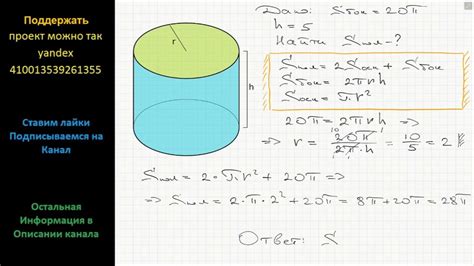 Поддержать
проект можно так
yandex
410013539261355
Ставим лайки
Подписываемся на
Канал
Остальная
Информация в
Описании канала
r
h
Дано: Sбок = 20π
h = 5
Найти Sпол - ?
Sпол = 2Sосн + Sбок
Sбок = 2πrh
Sосн = πr²
20π = 2πrh =>
=> r = 20π / 2π·h = 10/5 = 2
10
Sпол = 2·π·r² + 20π =>
=> Sпол = 2·π·2² + 20π = 8π + 20π = 28π
Ответ: S